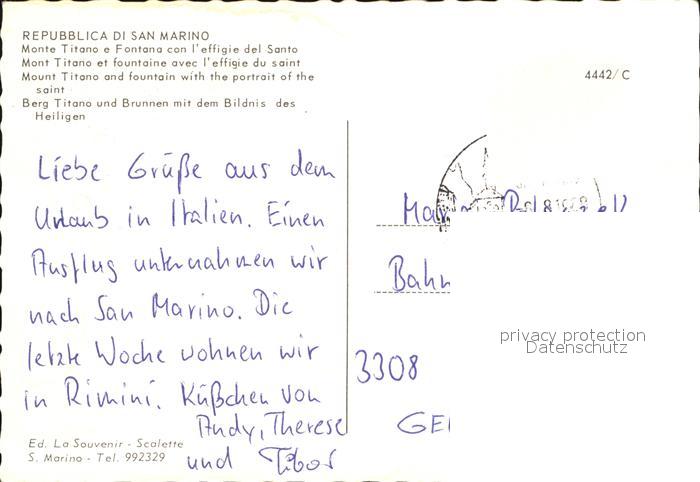 REPUBBLICA DI SAN MARINO
Monte Titano e Fontana con l'effigie del Santo
Mont Titano et fountaine avec l'effigie du saint
Mount Titano and fountain with the portrait of the
saint
Berg Titano und Brunnen mit dem Bildnis des
Heiligen
4442/C
Liebe Grüße aus dem
Urlaub in Italien. Einen
Ausflug unternahmen wir
nach San Marino. Die
letzte Woche wohnen wir
in Rimini. Küßchen von
Andy, Therese
und Tibor
Bahn
privacy protection
Datenschutz
3308
GE
Ed. La Souvenir - Scalette
S. Marino - Tel. 992329